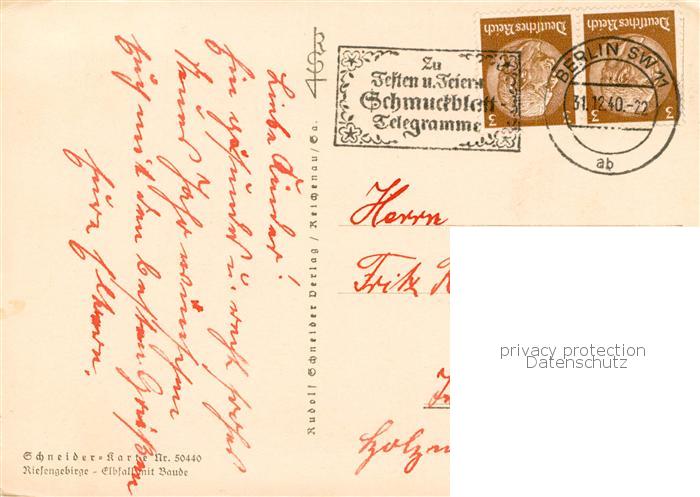 Liebe Kinder!
Ein gesundes u. recht frohes
Neues Jahr wünschen
Euch mit den besten Grüßen
Eure Eltern.
Schneider-Karte Nr. 50440
Riesengebirge - Elbfall mit Baude
Rudolf Schneider Verlag / Reichenau/Sa.
Zu
Festen u. Feiern
Schmuckblatt
Telegramme
Deutsches Reich
3
Deutsches Reich
3
BERLIN SW 11
31.12.40.-22
ab
Herrn
Fritz
privacy protection
Datenschutz